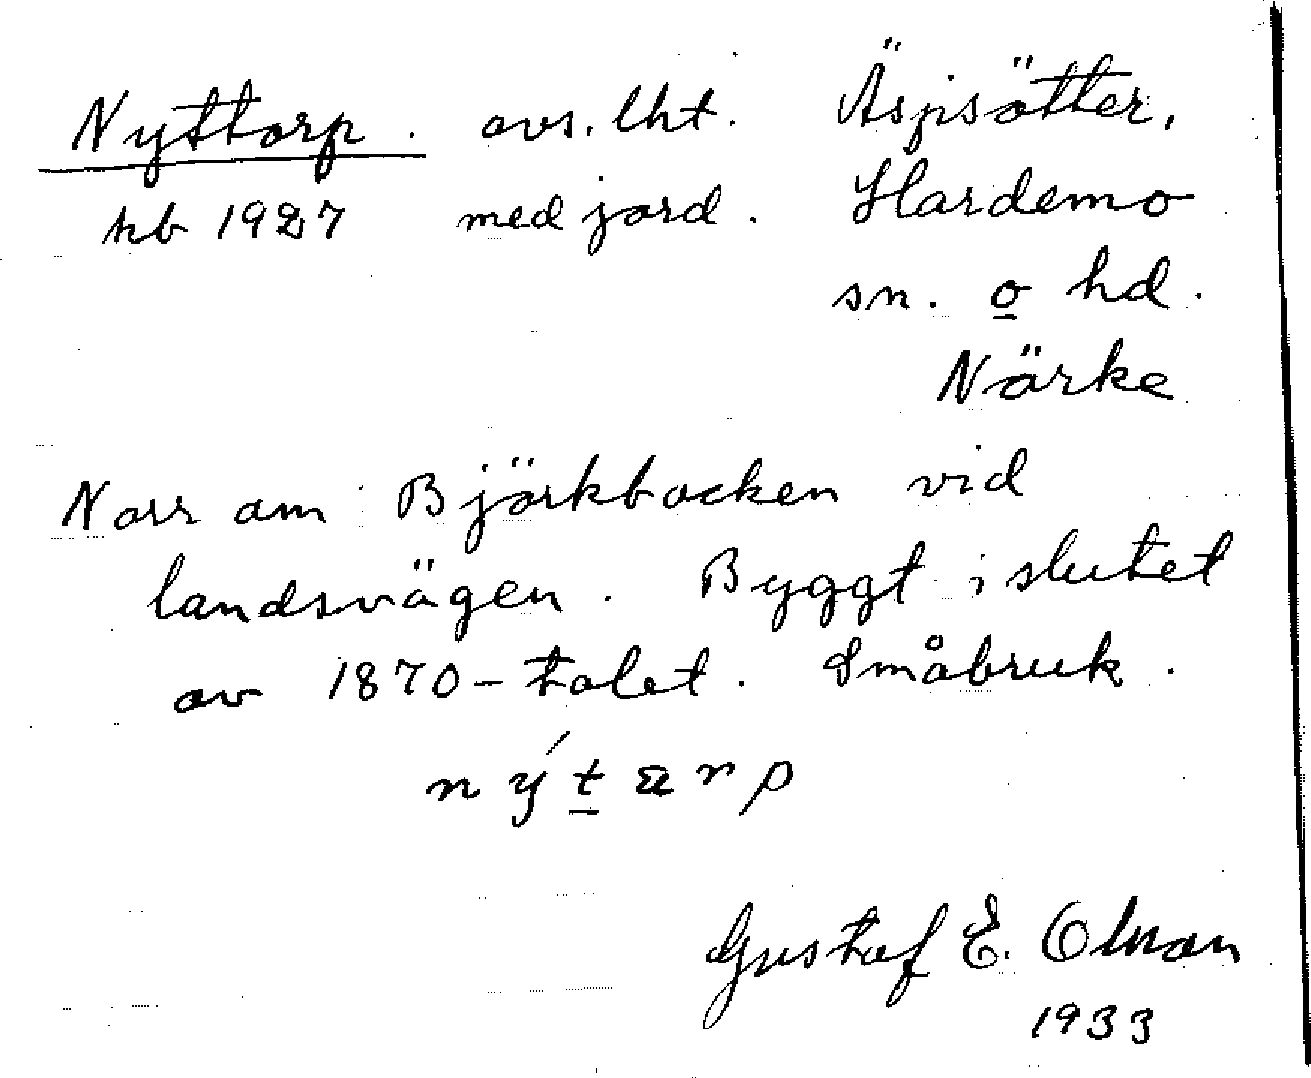 Nyttorp. avs. lht. Äspsätter,
kb 1927 med jord. Hardemo
sn. o hd.
Närke
Norr om Björkbacken vid
landsvägen. Byggt i slutet
av 1870-talet. Småbruk.
Gustaf E. Olsson
1933